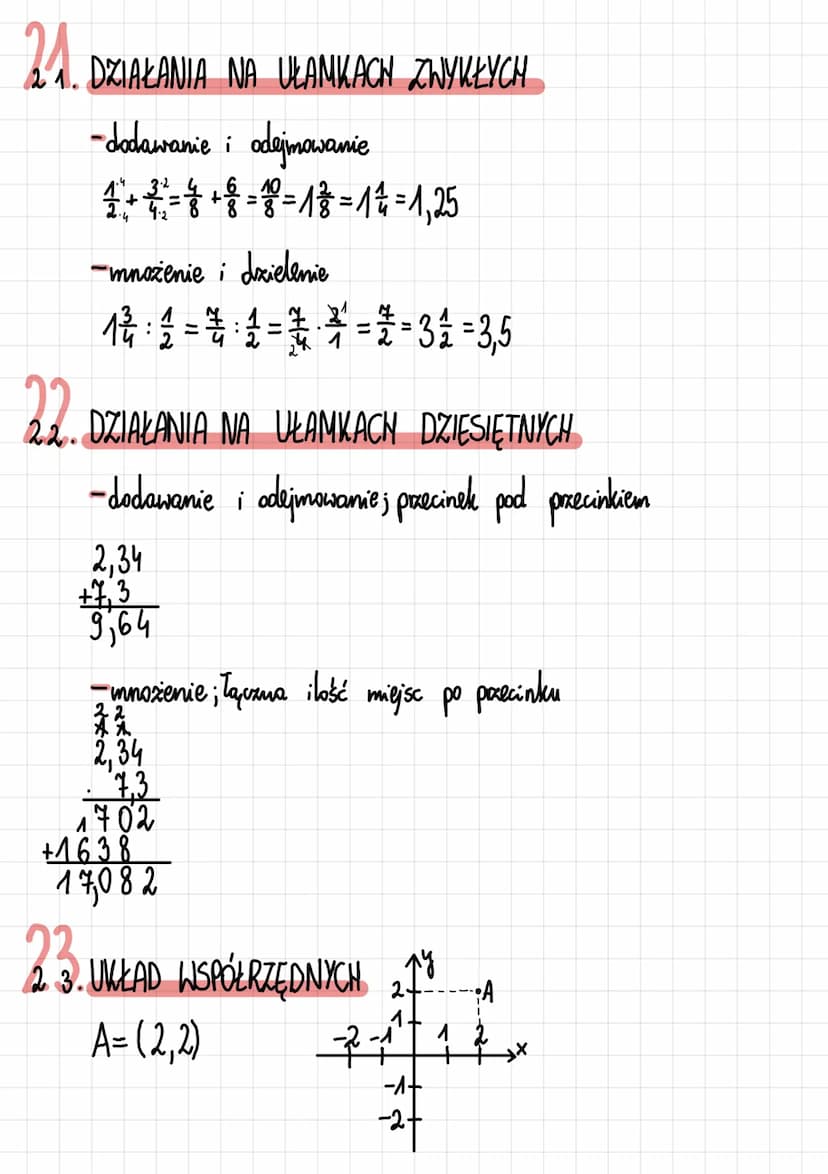 21. DZIAŁANIA NA UŁAMKACH ZWYKŁYCH
-dodawanie i odejmowanie
1·4/2·4 + 3·2/4·2 = 4/8 + 6/8 = 10/8 = 1 2/8 = 1 1/4 = 1,25
-mnożenie i dzielenie
1 3/4 : 1/2 = 7/4 : 1/2 = 7/4 2 · 2 1/1 = 7/2 = 3 1/2 = 3,5
22. DZIAŁANIA NA UŁAMKACH DZIESIĘTNYCH
-dodawanie i odejmowanie; przecinek pod przecinkiem
2,34
+7,3
9,64
-mnożenie; łączna ilość miejsc po przecinku
2 2
1 1
2,34
· 7,3
1702
+1638
17,082
23. UKŁAD WSPÓŁRZĘDNYCH
A=(2,2)
y
2 A
1
-2 -1 1 2 x
-1
-2